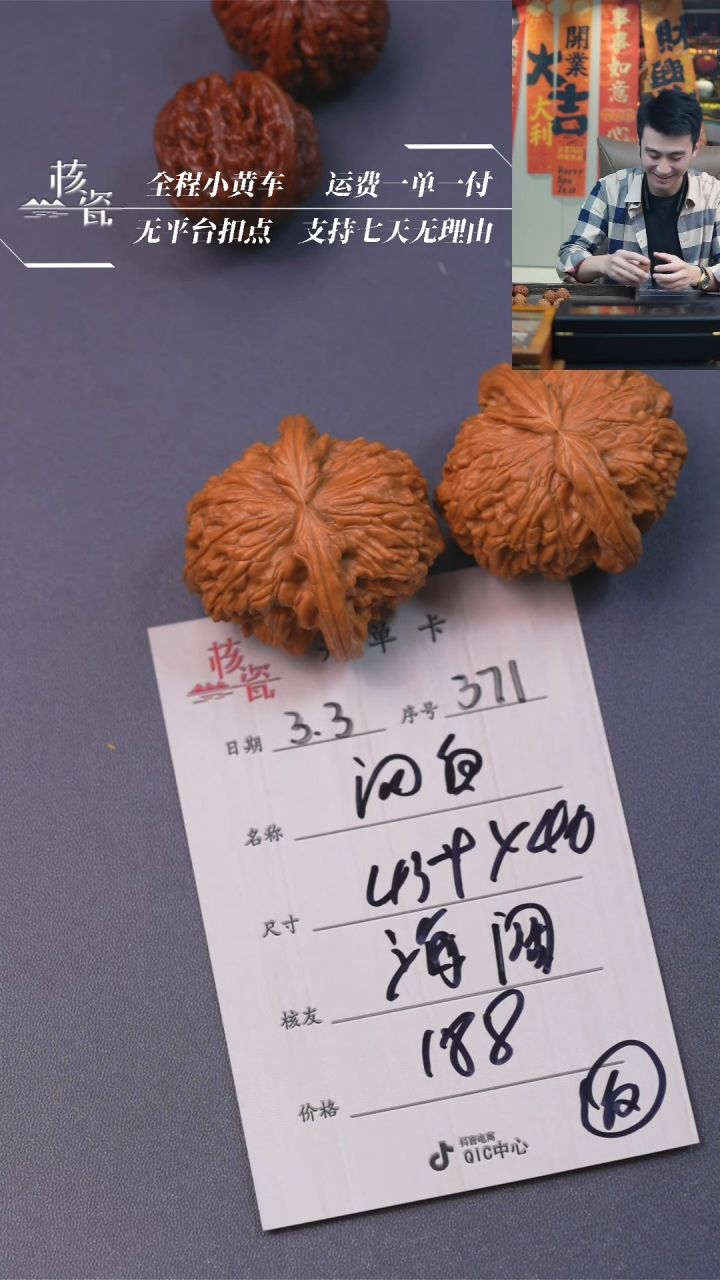 核瓷
全程小黄车 运费一单一付
无平台扣点 支持七天无理由
開業
大吉
大利
事事如意
心
財興
核瓷
单卡
日期 3.3 序号 371
名称
尺寸 43+×40
核友 海阔
价格 188
抖音电商
QIC中心